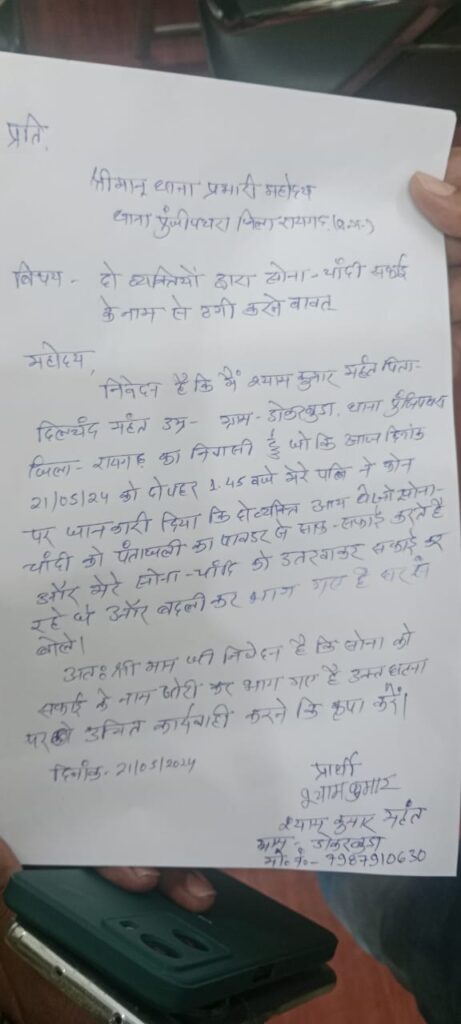 प्रति,
श्रीमान् थाना प्रभारी महोदय
थाना पुंजीपथरा जिला रायगढ़ (छ.ग.)
विषय - दो व्यक्तियों द्वारा सोना-चाँदी सफाई
के नाम से ठगी करने बावत्
महोदय,
निवेदन है कि मैं श्याम कुमार महंत पिता-
महंत उम्र- ग्राम- डोकरबुडा, थाना पुंजिपथरा
जिला- रायगढ़ का निवासी हूँ जो कि आज दिनांक
21/05/24 को दोपहर 1.45 बजे मेरे पत्नि ने फोन
पर जानकारी दिया कि दो व्यक्ति आय थे जो सोना-
चाँदी को पंताजली का पावडर से साफ-सफाई करते है
और मेरे सोना-चाँदि को उतरवाकर सफाई कर
रहे थे और बदली कर भाग गए है
बोले।
अतः श्री मान जी निवेदन है कि सोना को
सफाई के नाम चोरी कर भाग गए है उक्त घटना
पर उचित कार्यवाही करने कि कृपा करें।
दिनांक- 21/05/2024
प्रार्थी
श्याम कुमार
श्याम कुमार महंत
ग्राम - डोकरबुडा
मो. नं.- 7987910630